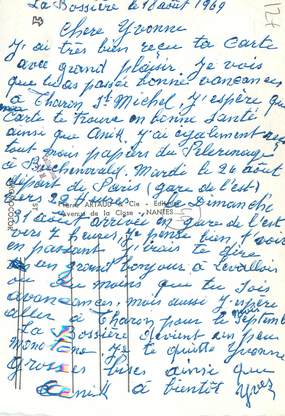 La Bossière le 18 août 1969
127
Chère Yvonne
J'ai très bien reçu ta Carte
avec grand plaisir je vois
que tu as passé bonne vancances
à Tharon St Michel, j'espère que
Carte te trouve en bonne Santé
ainsi que Anik. J'ai également
tout mois papiers du Pelerinage
à Buchenwald. Mardi le 26 août
départ de Paris (gare de l'est)
vers 22 h Dimanche
Pierre ARTAUD & Cie - Editeurs
Avenue de la Close - NANTES
31 août arrivée en gare de l'est
vers 7 heures, je pense bien
en passant j'irais te dire
un grand bonjour à Levallois
ou du moins que tu sois
avancances, mais aussi j'espère
aller à Tharon pour le Septembre
La Bossière devient un peu
monotone je te quitte Yvonne
Grosses bises ainsi que
Anik à bientôt Yves